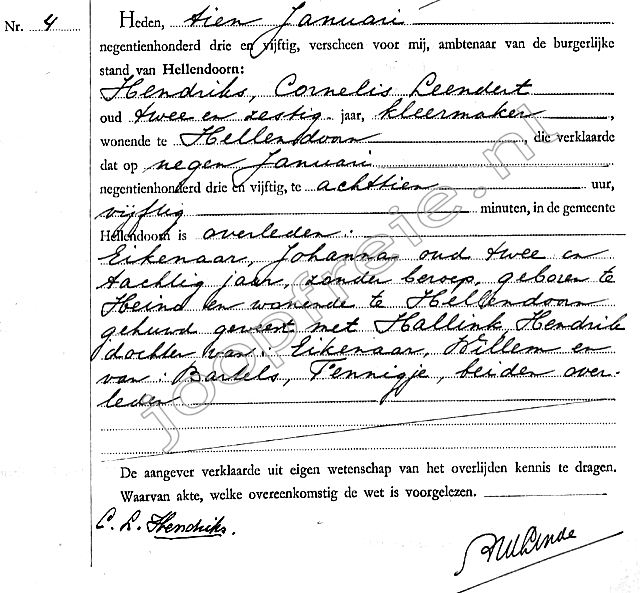 Nr. 4
Heden, tien Januari
negentienhonderd drie en vijftig, verscheen voor mij, ambtenaar van de burgerlijke
stand van Hellendoorn:
Hendriks, Cornelis Leendert
oud twee en zestig jaar, kleermaker,
wonende te Hellendoorn, die verklaarde
dat op negen Januari
negentienhonderd drie en vijftig, te achttien uur,
vijftig minuten, in de gemeente
Hellendoorn is overleden:
Eikenaar, Johanna oud twee en
tachtig jaar, zonder beroep, geboren te
Heino en wonende te Hellendoorn
gehuwd geweest met Hallink Hendrik
dochter van: Eikenaar, Willem en
van: Bartels, Fennigje, beiden over-
leden
De aangever verklaarde uit eigen wetenschap van het overlijden kennis te dragen.
Waarvan akte, welke overeenkomstig de wet is voorgelezen.
C. L. Hendriks.
joopfreie.nl